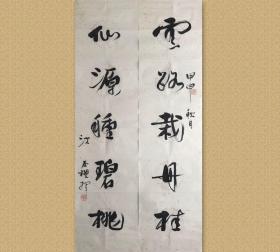 雲路栽丹桂
甲申秋月
仙源種碧桃